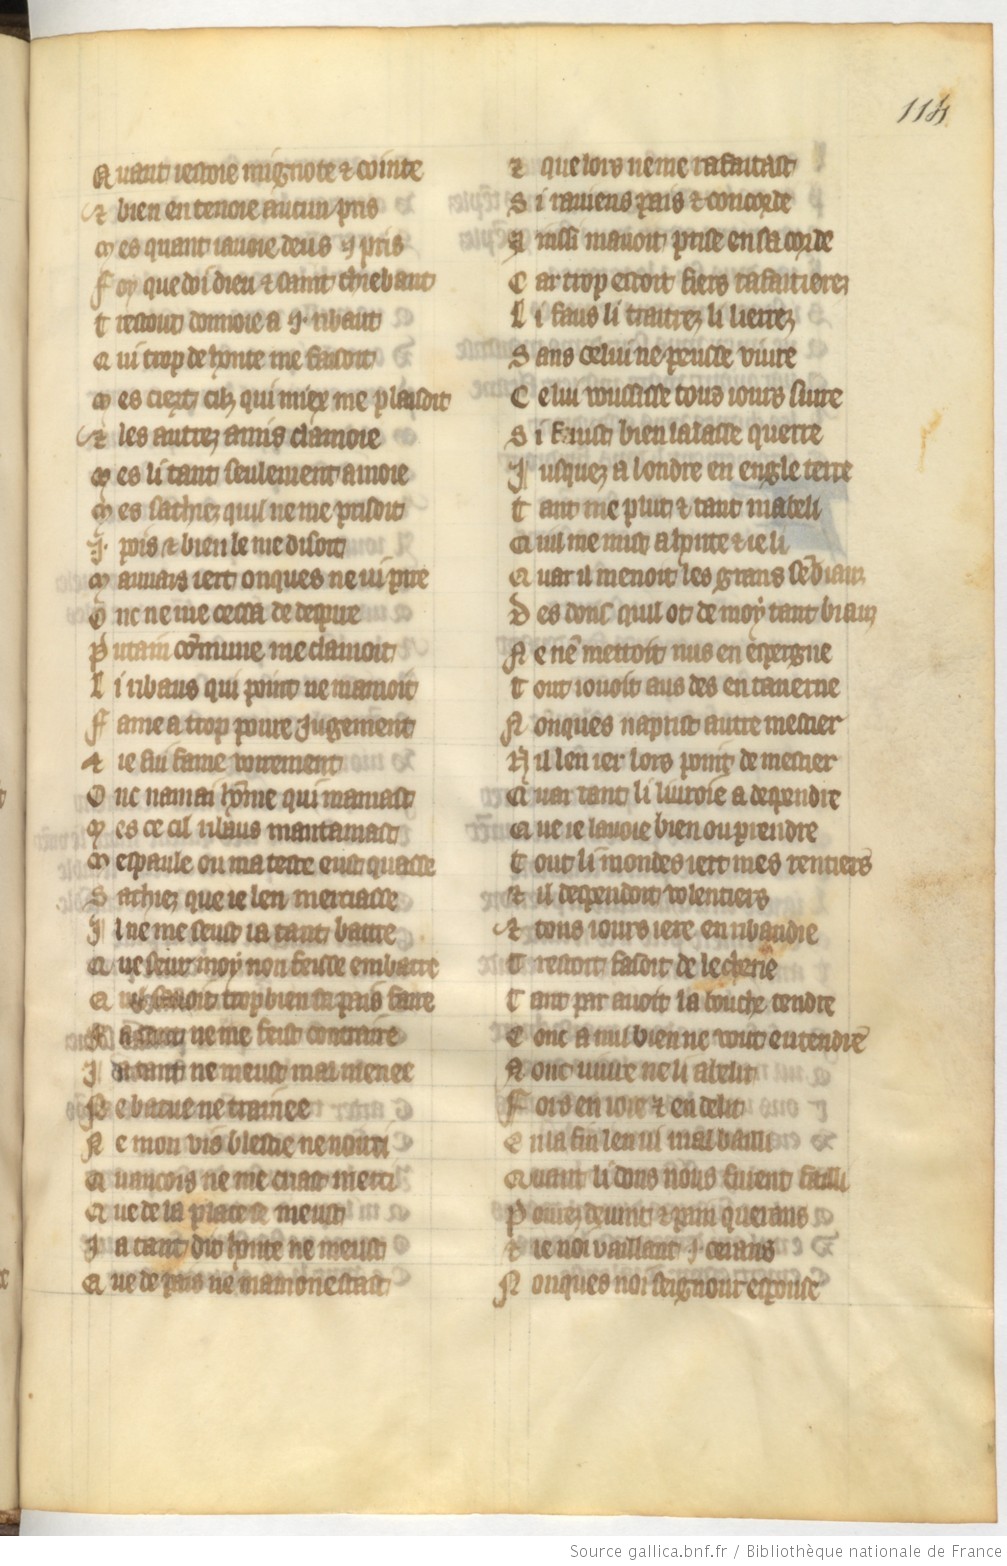 114
Quant iestoie mignote & cointe
& bien en tenoie aucun pris
Mes quant iauoie deus ou pris
Foy que doi dieu & saint thiebaut
Trestout donnoie a .I. ribaut
Qui trop de honte me faisoit
Mes ciert cilz qui miex me plaisoit
& les autrez amis clamoie
Mes li tant seulement amoie
Mes sachiez quil ne me prisoit
.I. pois & bien le me disoit
Mauuais iert onques ne ui pire
Onc ne me cessa de despire
Putain cõmune me clamoit
Li ribaus qui point ne mamoit
Fame a trop poure Jugement
& ie fui fame voirement
Onc namai hõme qui mamast
Mes ce cil ribaus mantamast
Mespaule ou ma teste eust quasse
Sachiez que ie len merciasse
Il ne me seust ia tant batre
Que seur moy non feisse embatre
Quil sauoit trop bien sa pais faire
Ia tant ne me feist contraire
Ia tant ne meust mal menee
Ne batue ne trainee
Ne mon vis blescie ne nourci
Quancois ne me criast merci
Que de la place se meust
Ia tant dit honte ne meust
Que de pais ne mamonestast
& que lors ne me rafaitast
Si rauiens pais & concorde
Ainssi mauoit prise en sa corde
Car trop estoit fiers rafaitierez
Li faus li traitrez li lierrez
Sans celui ne peusse viure
Celui voussisse tous iours siure
Si fuist bien lalasse querre
Jusquez a londre en engleterre
Tant me plut & tant mabeli
Quil me mist a honte & ie li
Quar il menoit les grans cẽbiaus
Des dons quil ot de moy tant biaus
Ne nẽ mettoit nus en espergne
Tout iouoit aus des en tauerne
Nonques naprist autre mestier
Nil len ier lors point de mestier
Quar tant li liuroie a despendre
Que ie lauoie bien ou prendre
Tout li mondes iert mes rentiers
& il despendoit volentiers
& tous iours iere en ribaudie
Trestout fasoit de lecherie
Tant par auoit la bouche tendre
Conc a nul bien ne vout entendre
Nonc uiure ne li abelit
Fors en ioie & en delit
En la fin len ui mal bailli
Quant li dons nous furent failli
Pourez deuint & pain querans
& ie noi vaillant .I. cerans
Nonques noi seignour espouse
Source gallica.bnf.fr / Bibliothèque nationale de France